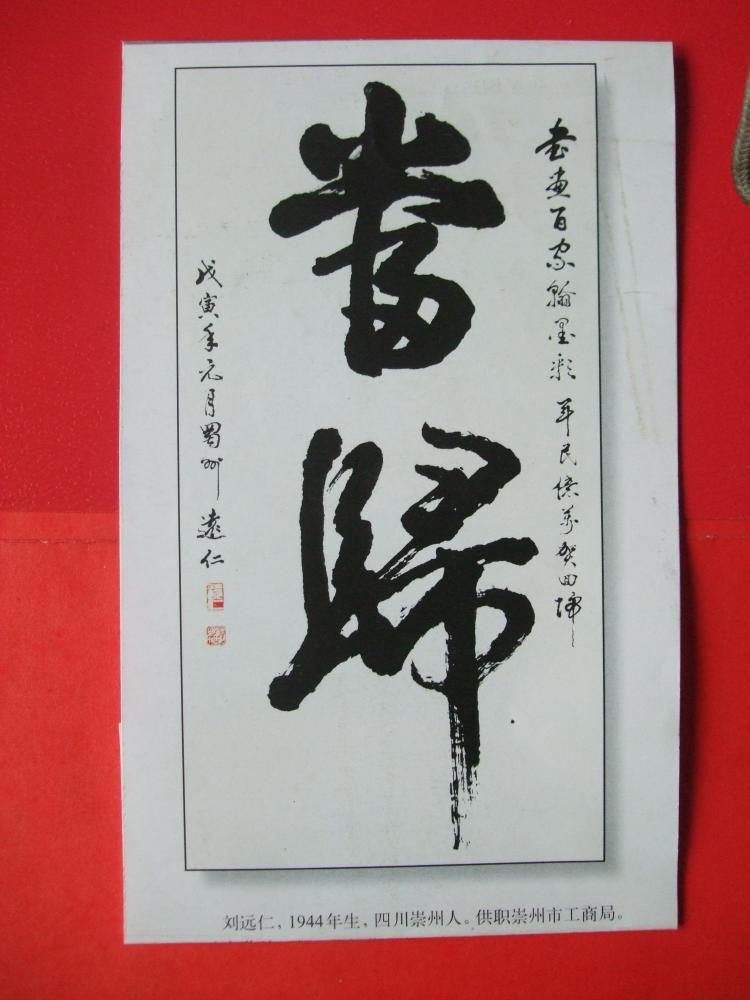 書畫百家翰墨彩 軍民億萬賀回歸
當歸
戊寅年元月蜀州遠仁
刘远仁，1944年生，四川崇州人。供职崇州市工商局。